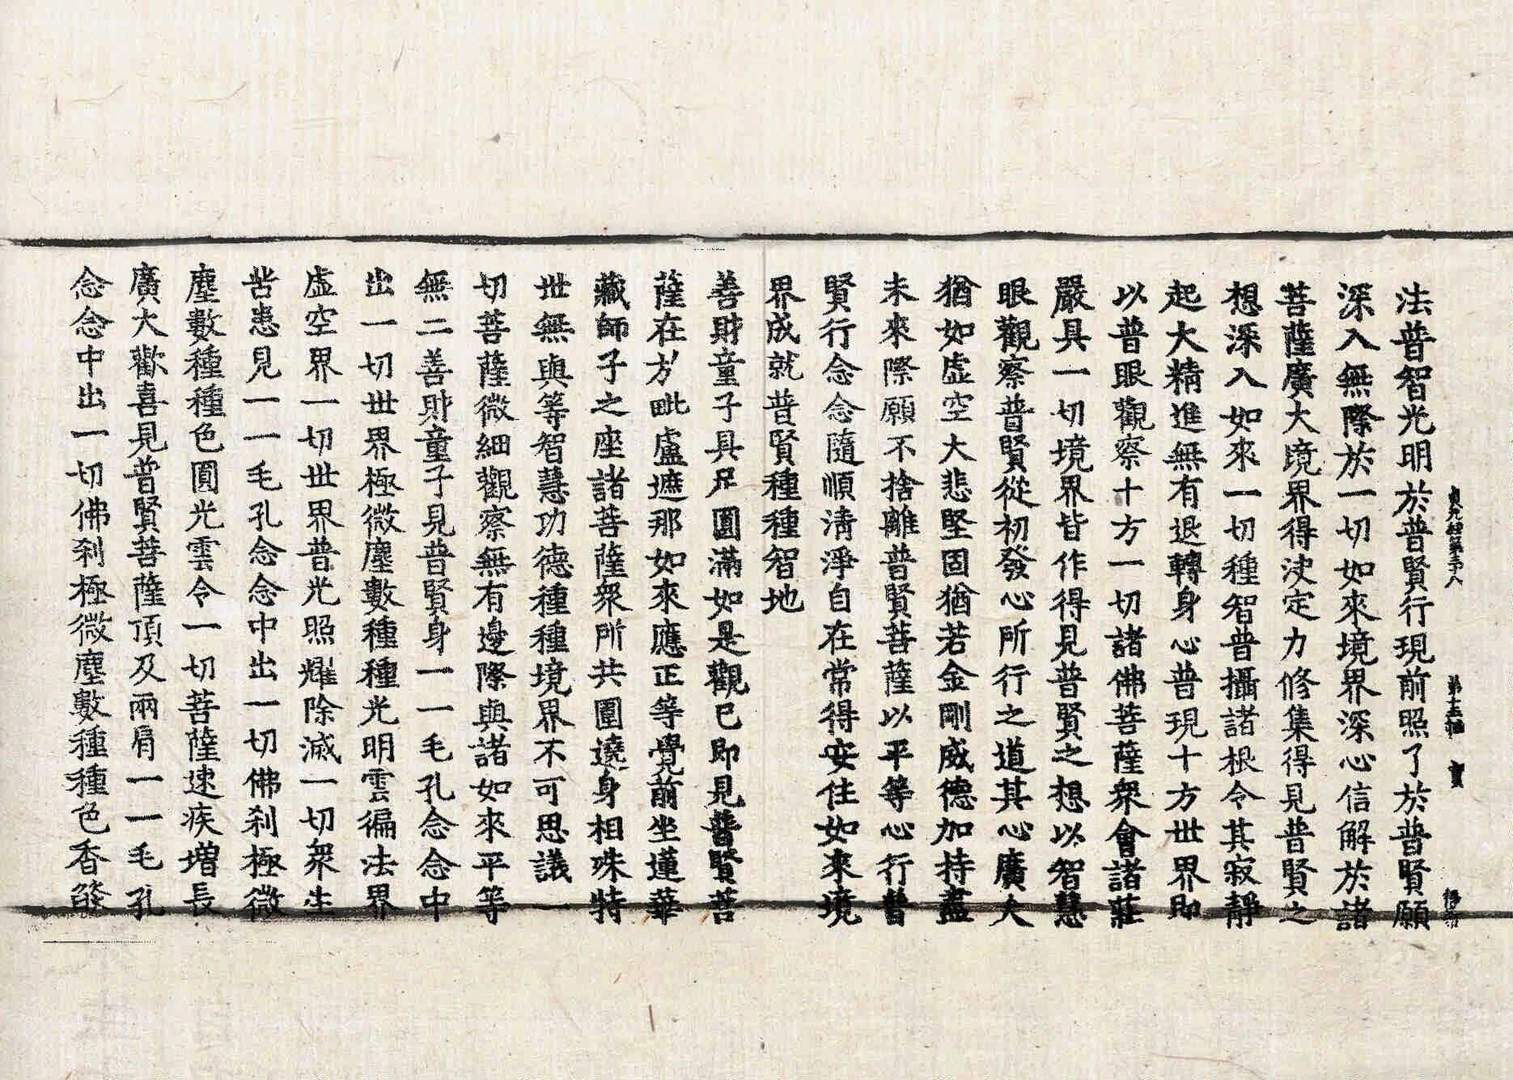 貞元經第三十八 第十五幅 賓
法普智光明於普賢行現前照了於普賢願
深入無際於一切如來境界深心信解於諸
菩薩廣大境界得決定力修集得見普賢之
想深入如來一切種智普攝諸根令其寂靜
起大精進無有退轉身心普現十方世界即
以普眼觀察十方一切諸佛菩薩衆會諸莊
嚴具一切境界皆作得見普賢之想以智慧
眼觀察普賢從初發心所行之道其心廣大
猶如虛空大悲堅固猶若金剛威德加持盡
未來際願不捨離普賢菩薩以平等心行普
賢行念念隨順清淨自在常得安住如來境
界成就普賢種種智地
善財童子具足圓滿如是觀已即見普賢菩
薩在方毗盧遮那如來應正等覺前坐蓮華
藏師子之座諸菩薩衆所共圍遶身相殊特
世無與等智慧功德種種境界不可思議一
切菩薩微細觀察無有邊際與諸如來平等
無二善財童子見普賢身一一毛孔念念中
出一切世界極微塵數種種光明雲徧法界
虛空界一切世界普光照耀除滅一切衆生
苦患見一一毛孔念念中出一切佛刹極微
塵數種種色圓光雲令一切菩薩速疾增長
廣大歡喜見普賢菩薩頂及兩肩一一毛孔
念念中出一切佛刹極微塵數種種色香㷔